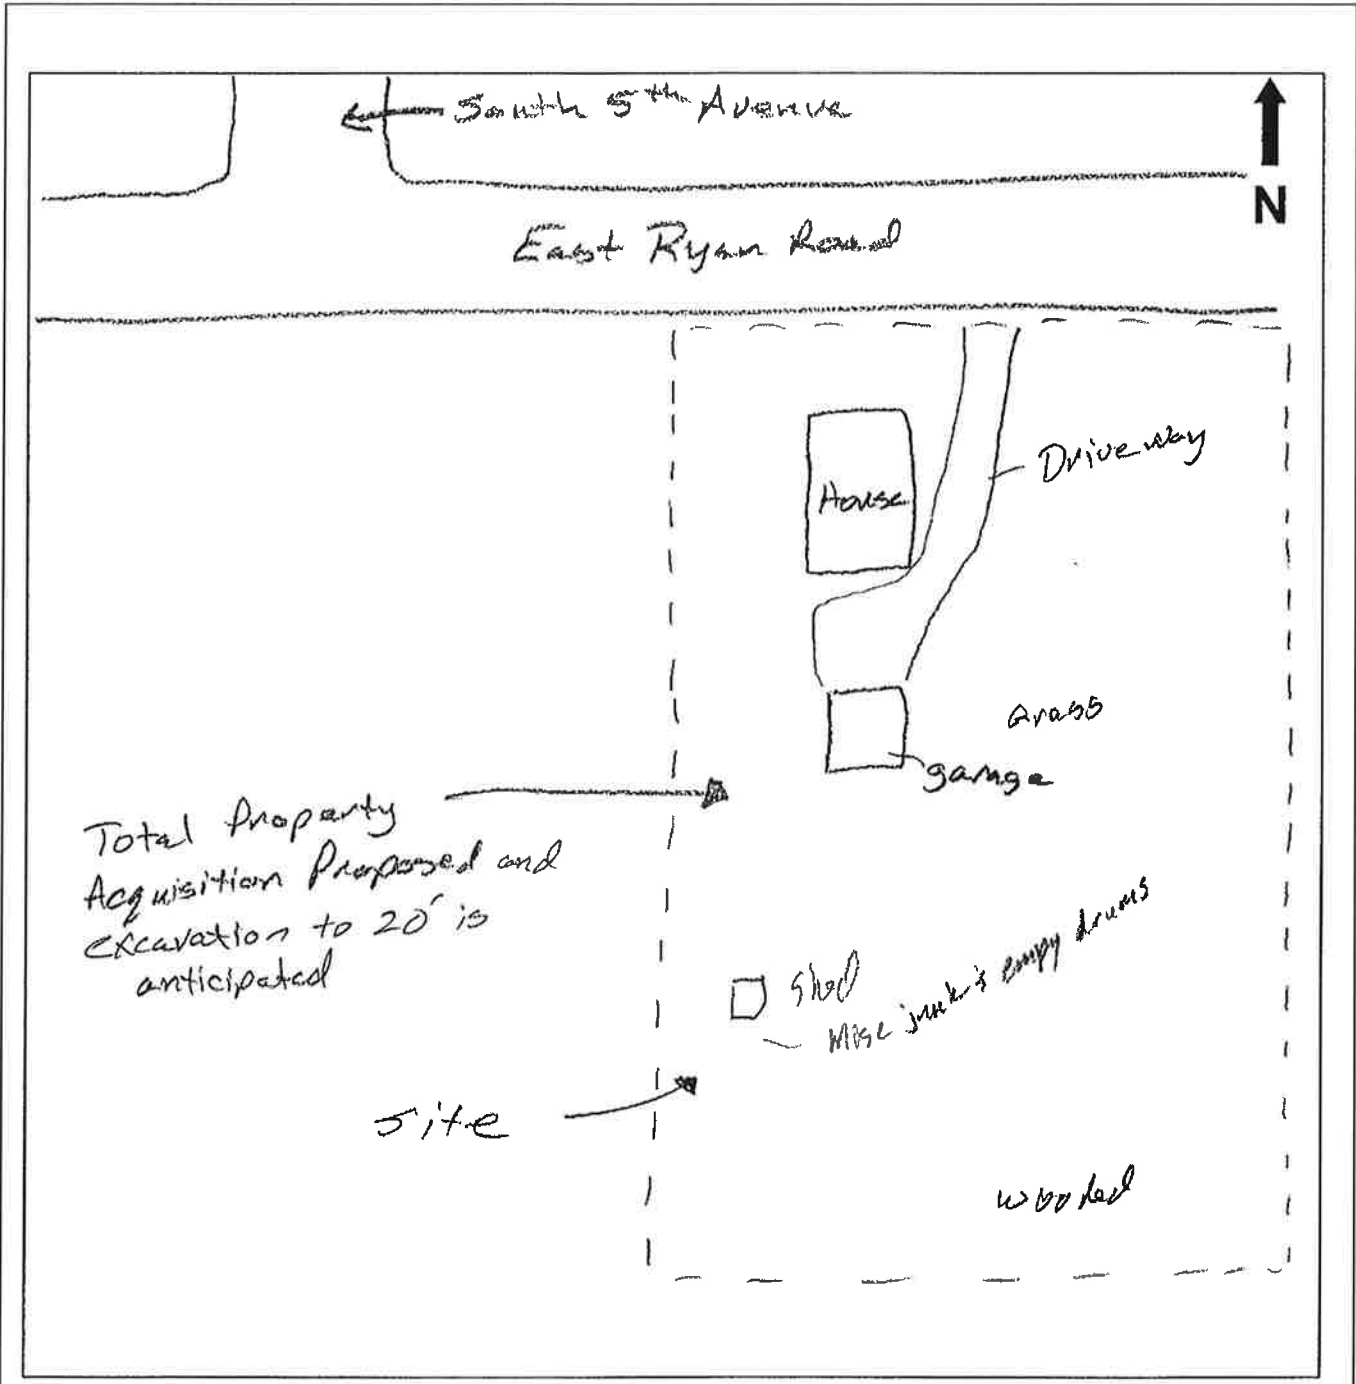 South 5th Avenue
N
East Ryan Road
Driveway
House
Grass
garage
Total Property
Acquisition Proposed and
excavation to 20' is
anticipated
Shed
Misc junk & empy drums
Site
wooded